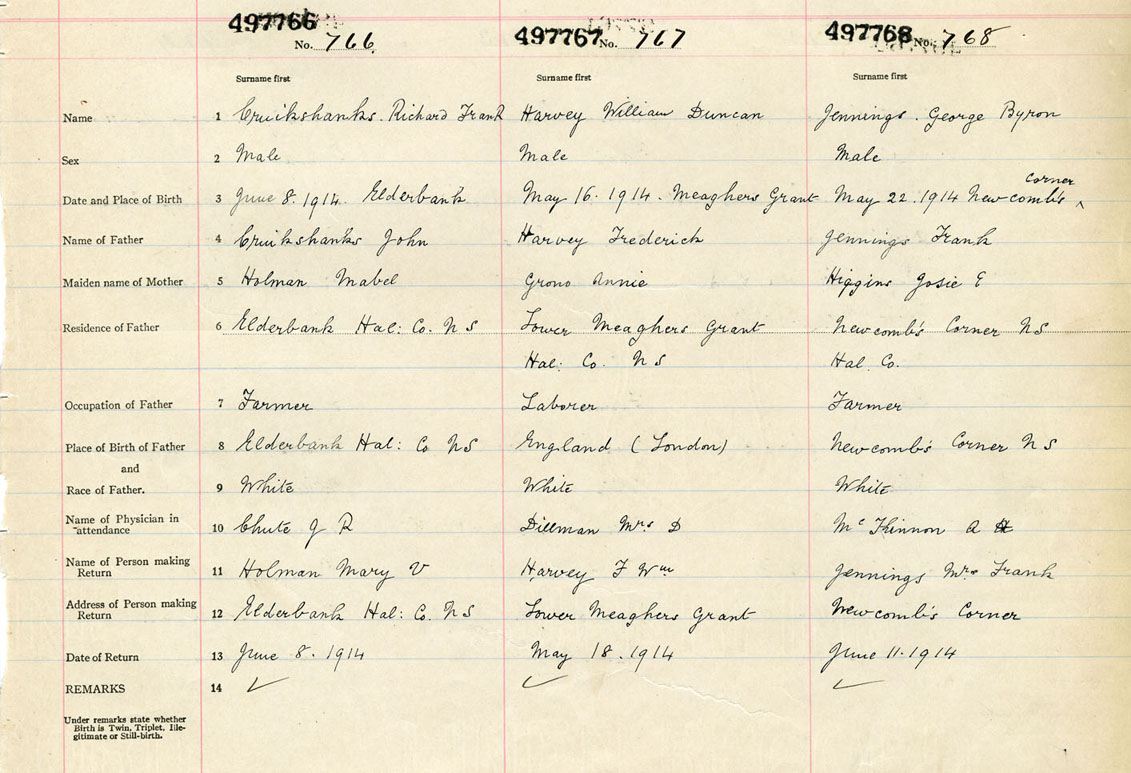 497766 497767 497768
No. 766 No. 767 No. 768
Surname first Surname first Surname first
Name 1 Cruikshanks. Richard Frank Harvey William Duncan Jennings. George Byron
Sex 2 Male Male Male
Corner
Date and Place of Birth 3 June 8. 1914. Elderbank May 16. 1914. Meaghers Grant May 22. 1914 Newcomb's ^
Name of Father 4 Cruikshanks John Harvey Frederick Jennings Frank
Maiden name of Mother 5 Holman Mabel Grono Annie Higgins Josie E
Residence of Father 6 Elderbank Hal: Co. N S Lower Meaghers Grant Newcomb's Corner N S
Hal: Co. N S Hal. Co.
Occupation of Father 7 Farmer Laborer Farmer
Place of Birth of Father 8 Elderbank Hal: Co N S England (London) Newcomb's Corner N S
and
Race of Father. 9 White White White
Name of Physician in
attendance 10 Chute J R Dillman Mrs D Mc Kinnon A
Name of Person making
Return 11 Holman Mary V Harvey F Wm Jennings Mrs Frank
Address of Person making
Return 12 Elderbank Hal: Co. N S Lower Meaghers Grant Newcomb's Corner
Date of Return 13 June 8. 1914 May 18. 1914 June 11. 1914
REMARKS 14 ✓ ✓ ✓
Under remarks state whether
Birth is Twin, Triplet, Ille-
gitimate or Still-birth.